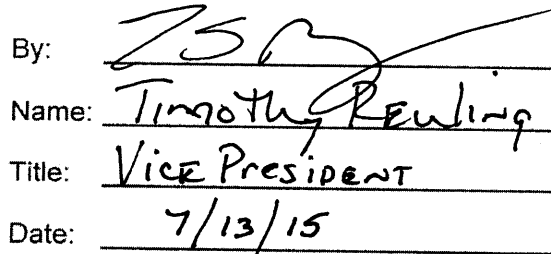 By:
Name: Timothy Reuling
Title: Vice President
Date: 7/13/15